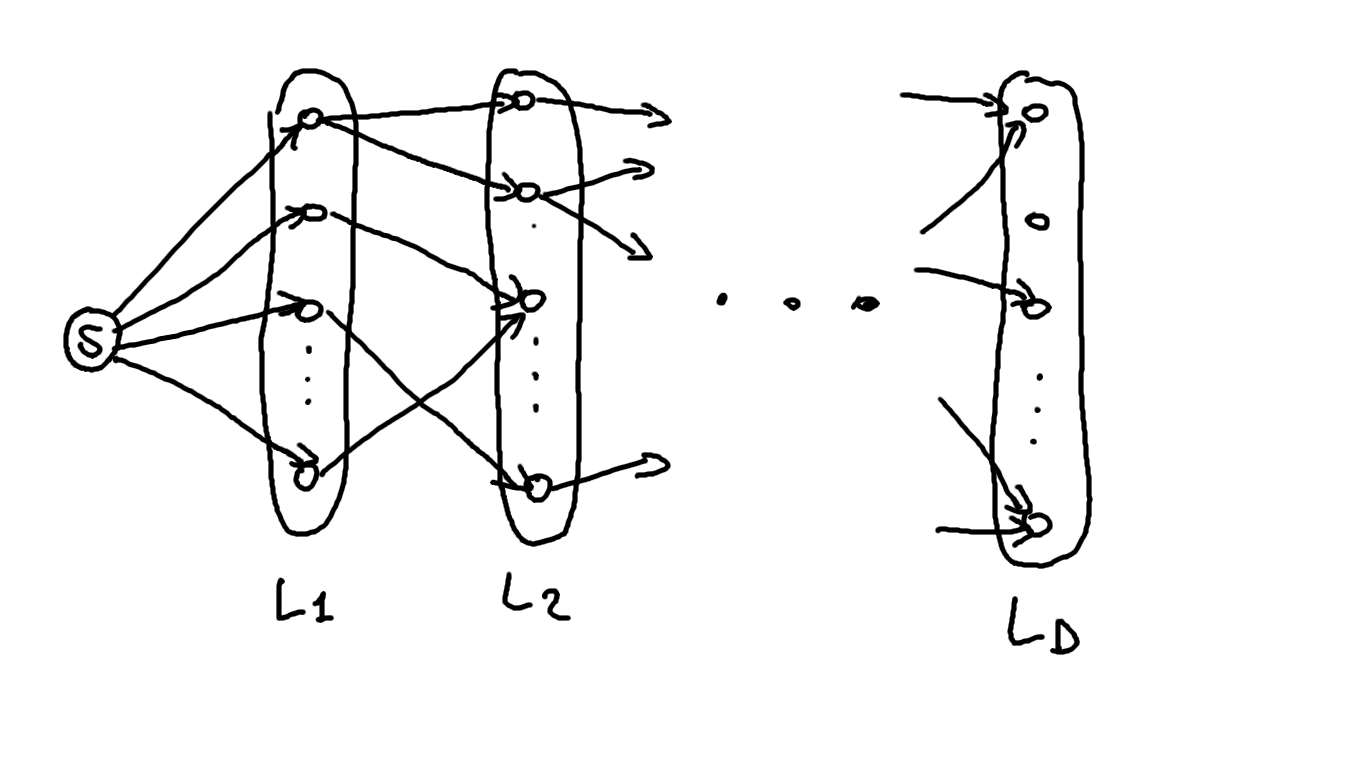 S
L1
L2
LD